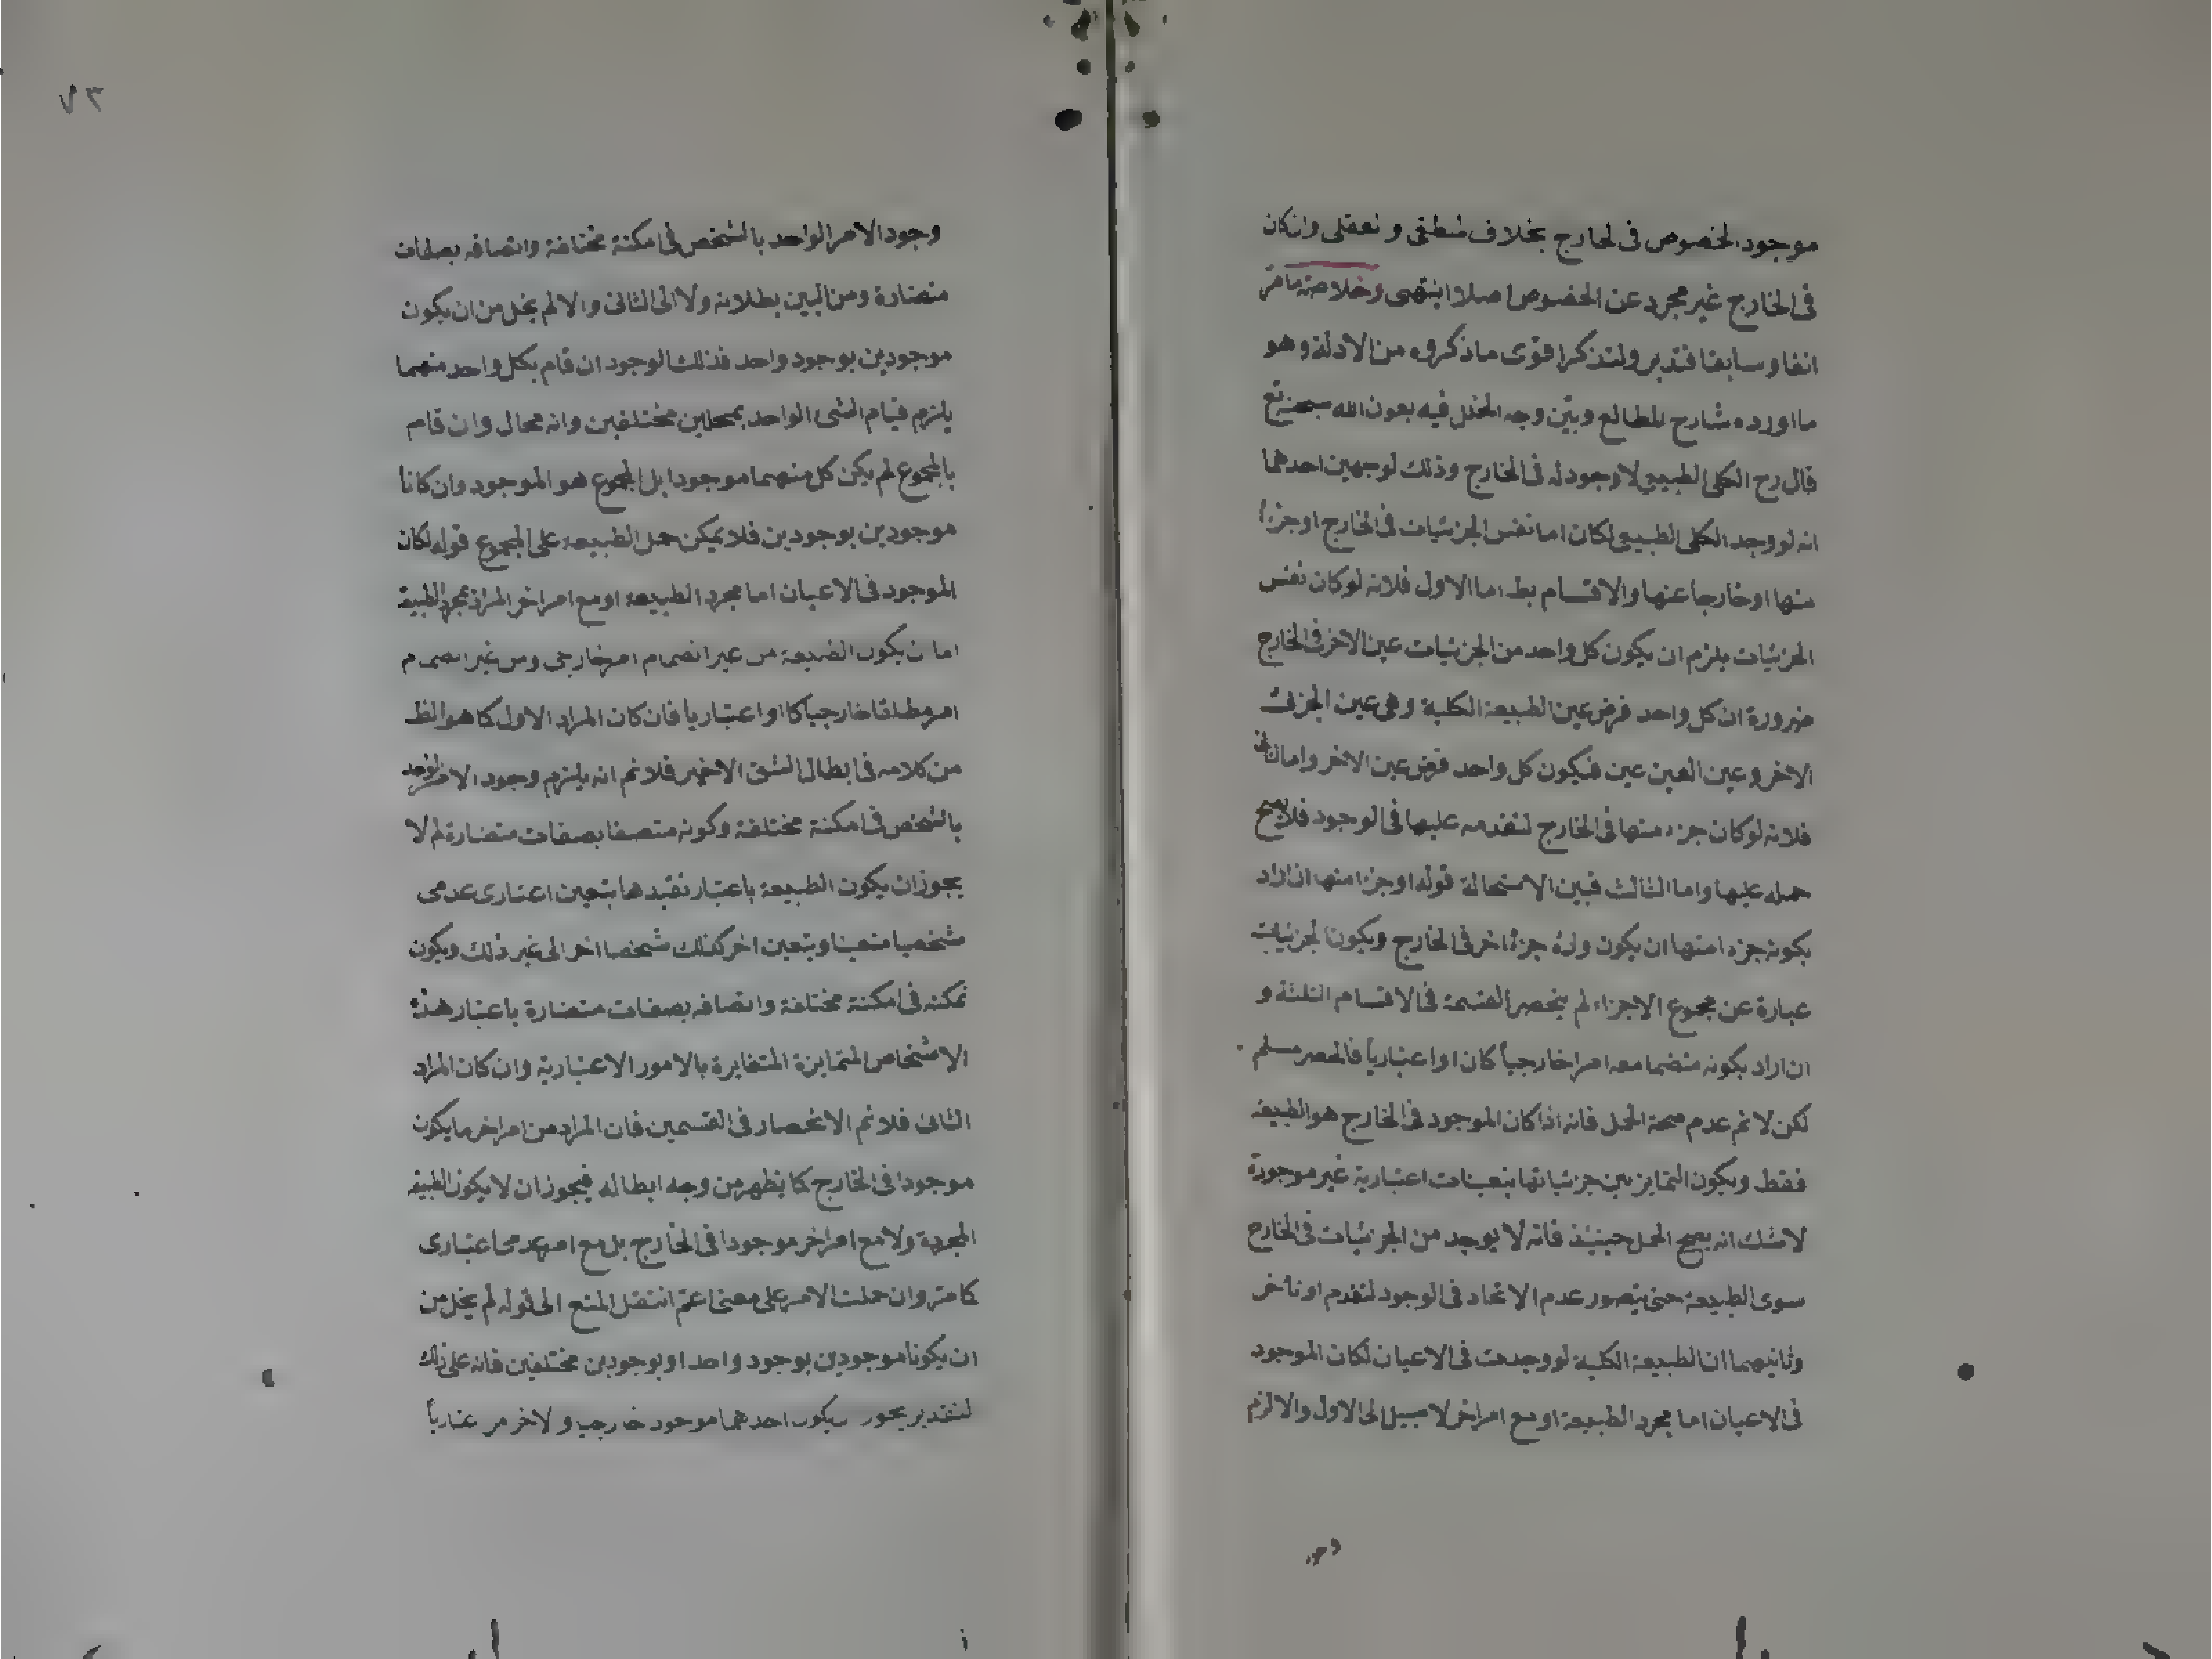 موجود الخصوص فى الخارج بخلاف منطقى و تعقلى وان كان
فى الخارج غير مجرد عن الخصوص اصلا انتهى وخلاصته مامر
انفا وسابقا فتدبر ولنذكر اقوى ما ذكروه من الادلة وهو
ما اورده شارح المطالع ونبين وجه الخلل فيه بعون الله سبحنه تع
قال رح الكلى الطبيعى لا وجود له فى الخارج وذلك لوجهين احدهما
انه لو وجد الكلى الطبيعى لكان اما نفس الجزئيات فى الخارج او جزءا
منها او خارجا عنها والاقسام بط اما الاول فلانه لو كان نفس
الجزئيات يلزم ان يكون كل واحد من الجزئيات عين الاخر فى الخارج
ضرورة ان كل واحد فرض عين الطبيعة الكلية وهى عين الجزئى
الاخر وعين العين عين فيكون كل واحد فرض عين الاخر واما الثانى
فلانه لو كان جزء منها فى الخارج لتقدمه عليها فى الوجود فلا يصح
حمله عليها واما الثالث فبين الاستحالة قوله او جزءا منها ان اراد
بكونه جزءا منها ان يكون وله جزء اخر فى الخارج ويكون الجزئيات
عبارة عن مجموع الاجزاء لم ينحصر القسمة فى الاقسام الثلثة و
ان اراد بكونه منضما معه امرا خارجيا كان او اعتباريا فالحصر مسلم
لكن لا نم عدم صحة الحمل فانه اذا كان الموجود فى الخارج هو الطبيعة
فقط ويكون التمايز بين جزئياتها بتعينات اعتبارية غير موجودة
لا شك انه يصح الحمل حينئذ فانه لا يوجد من الجزئيات فى الخارج
سوى الطبيعة حتى يتصور عدم الاتحاد فى الوجود لتقدم او تأخر
وثانيهما ان الطبيعة الكلية لو وجدت فى الاعيان لكان الموجود
فى الاعيان اما مجرد الطبيعة او مع امر اخر لا سبيل الى الاول والا لزم
٧٣
وجود الامر الواحد بالشخص فى امكنة مختلفة واتصافه بصفات
متضادة ومن البين بطلانه ولا الى الثانى والا لم يخل من ان يكون
موجودين بوجود واحد فذلك الوجود ان قام بكل واحد منهما
يلزم قيام الشى الواحد بمحلين مختلفين وانه محال وان قام
بالمجموع لم يكن كل منهما موجودا بل المجموع هو الموجود وان كانا
موجودين بوجودين فلا يمكن حمل الطبيعة على المجموع قوله لكان
الموجود فى الاعيان اما مجرد الطبيعة او مع امر اخر المراد بمجرد الطبيعة
اما ان يكون الطبيعة من غير انضمام امر خارجى ومن غير انضمام
امر مطلقا خارجيا كان او اعتباريا فان كان المراد الاول كما هو الظ
من كلامه فى ابطال الشق الاخير فلا نم انه يلزم وجود الامر الواحد
بالشخص فى امكنة مختلفة وكونه متصفا بصفات متضادة لم لا
يجوز ان يكون الطبيعة باعتبار تقيدها بتعين اعتبارى عدمى
شخصيا متعينا وبتعين اخر كذلك شخصا اخر الى غير ذلك ويكون
تمكنه فى امكنة مختلفة واتصافه بصفات متضادة باعتبار هذه
الاشخاص المتمايزة المتغايرة بالامور الاعتبارية وان كان المراد
الثانى فلا نم الانحصار فى القسمين فان المراد من امر اخر ما يكون
موجودا فى الخارج كما يظهر من وجه ابطاله فيجوز ان لا يكون الطبيعة
المجردة ولا مع امر اخر موجودا فى الخارج بل مع امر عدمى اعتبارى
كما مر وان حملت الامر على معنى اعم انتقل المنع الى قوله لم يخل من
ان يكونا موجودين بوجود واحد او بوجودين مختلفين فانه على ذلك
التقدير يجوز ان يكون احدهما موجود خارجيا والاخر امر اعتباريا